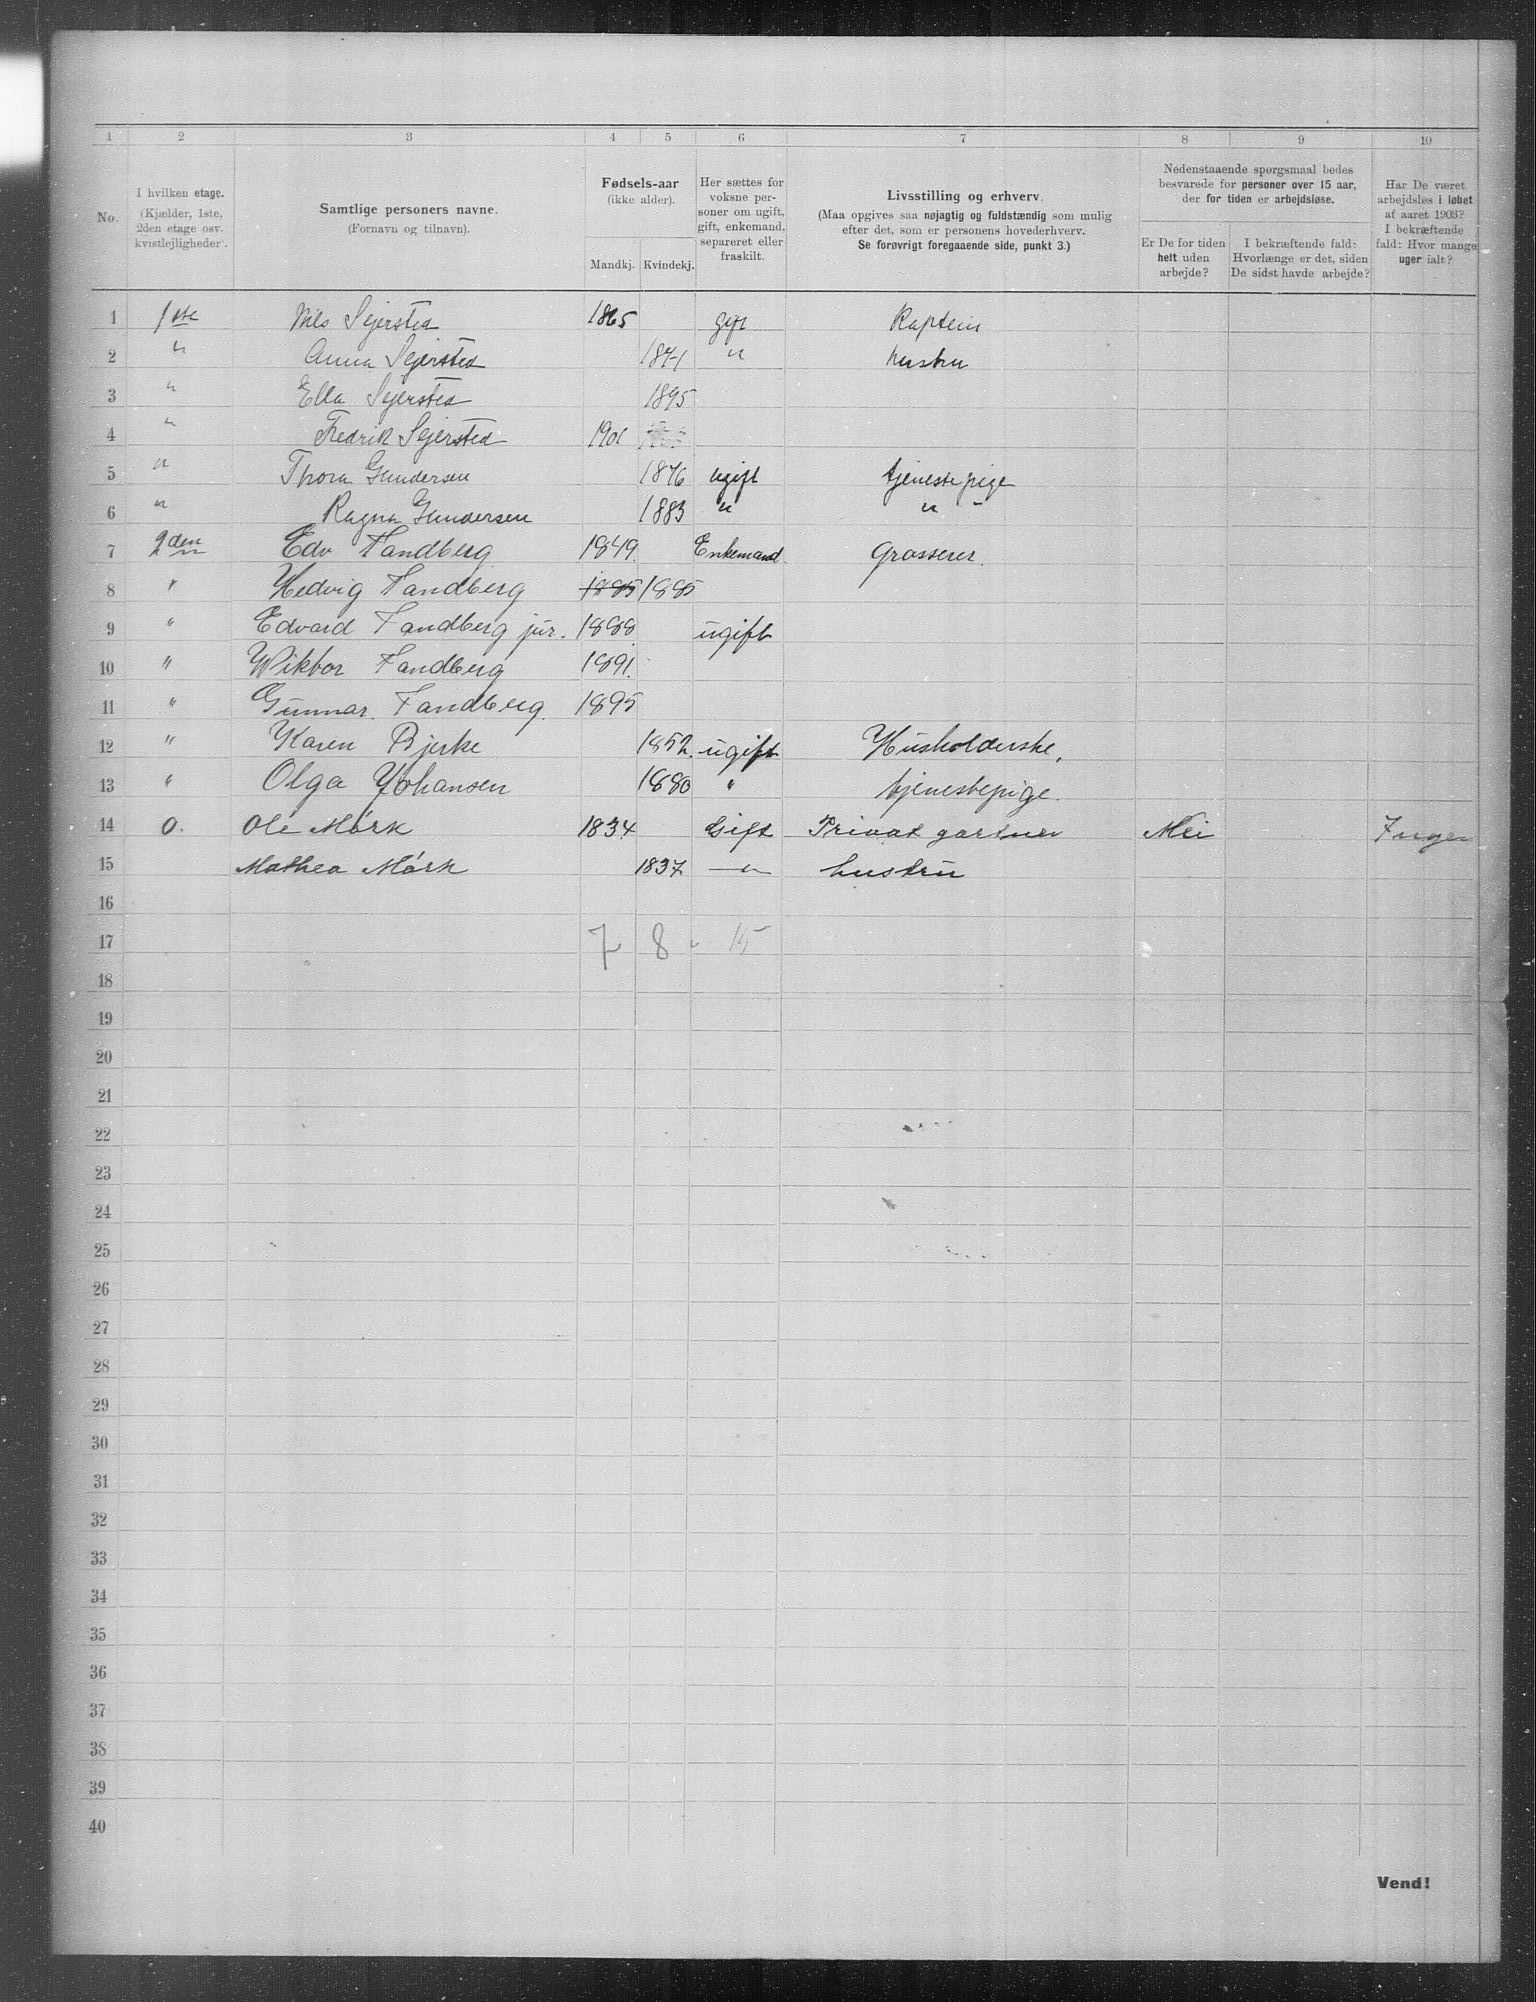 1 2 3 4 5 6 7 8 9 10
No.
I hvilken etage.
(Kjælder, 1ste,
2den etage osv.
kvistlejligheder).
Samtlige personers navne.
(Fornavn og tilnavn).
Fødsels-aar
(ikke alder).
Mandkj. Kvindekj.
Her sættes for
voksne per-
soner om ugift,
gift, enkemand,
separeret eller
fraskilt.
Livsstilling og erhverv.
(Maa opgives saa nøjagtig og fuldstændig som mulig
efter det, som er personens hovederhverv.
Se forøvrigt foregaaende side, punkt 3.)
Nedenstaaende spørgsmaal bedes
besvarede for personer over 15 aar,
der for tiden er arbejdsløse.
Er De for tiden
helt uden
arbejde?
I bekræftende fald:
Hvorlænge er det, siden
De sidst havde arbejde?
Har De været
arbejdsløs i løbet
af aaret 1903?
I bekræftende
fald: Hvor mange
uger ialt?
1 1ste Nils Sejersted 1865 gift Kaptein
2 " Anna Sejersted 1871 " hustru
3 " Ella Sejersted 1895
4 " Fredrik Sejersted 1901
5 " Thora Gundersen 1876 ugift tjenestepige
6 " Ragna Gundersen 1883 " " -
7 2den Edv Sandberg 1849. Enkemand. Grosserer.
8 " Hedvig Sandberg 1885 1885
9 " Edvard Sandberg jur. 1888 ugift
10 " Wiktor Sandberg 1891.
11 " Gunnar. Sandberg. 1895
12 " Karen Bjerke 1852. ugift Husholderske,
13 " Olga Johansen 1880 " tjenestepige.
14 0. Ole Mørk 1834 Gift Privat gartner Nei Ingen
15 Mathea Mørk 1837 —"— hustru
16
17 7 8 " 15
18
19
20
21
22
23
24
25
26
27
28
29
30
31
32
33
34
35
36
37
38
39
40
Vend!